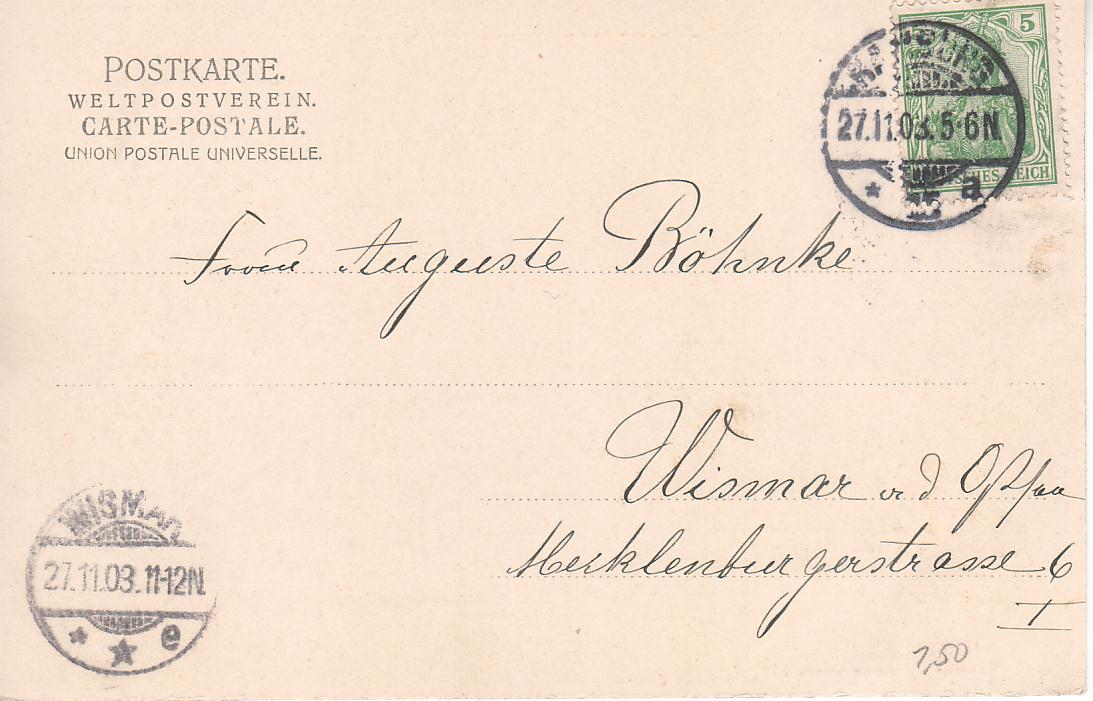 POSTKARTE.
WELTPOSTVEREIN.
CARTE-POSTALE.
UNION POSTALE UNIVERSELLE.
5
HAMBURG
27.11.03. 5-6N.
* a
REICH
Frau Auguste Böhnke
Wismar a. d. Ostsee
Mecklenburgerstrasse 6
I
WISMAR
27.11.03. 11-12N.
* * e
1,50